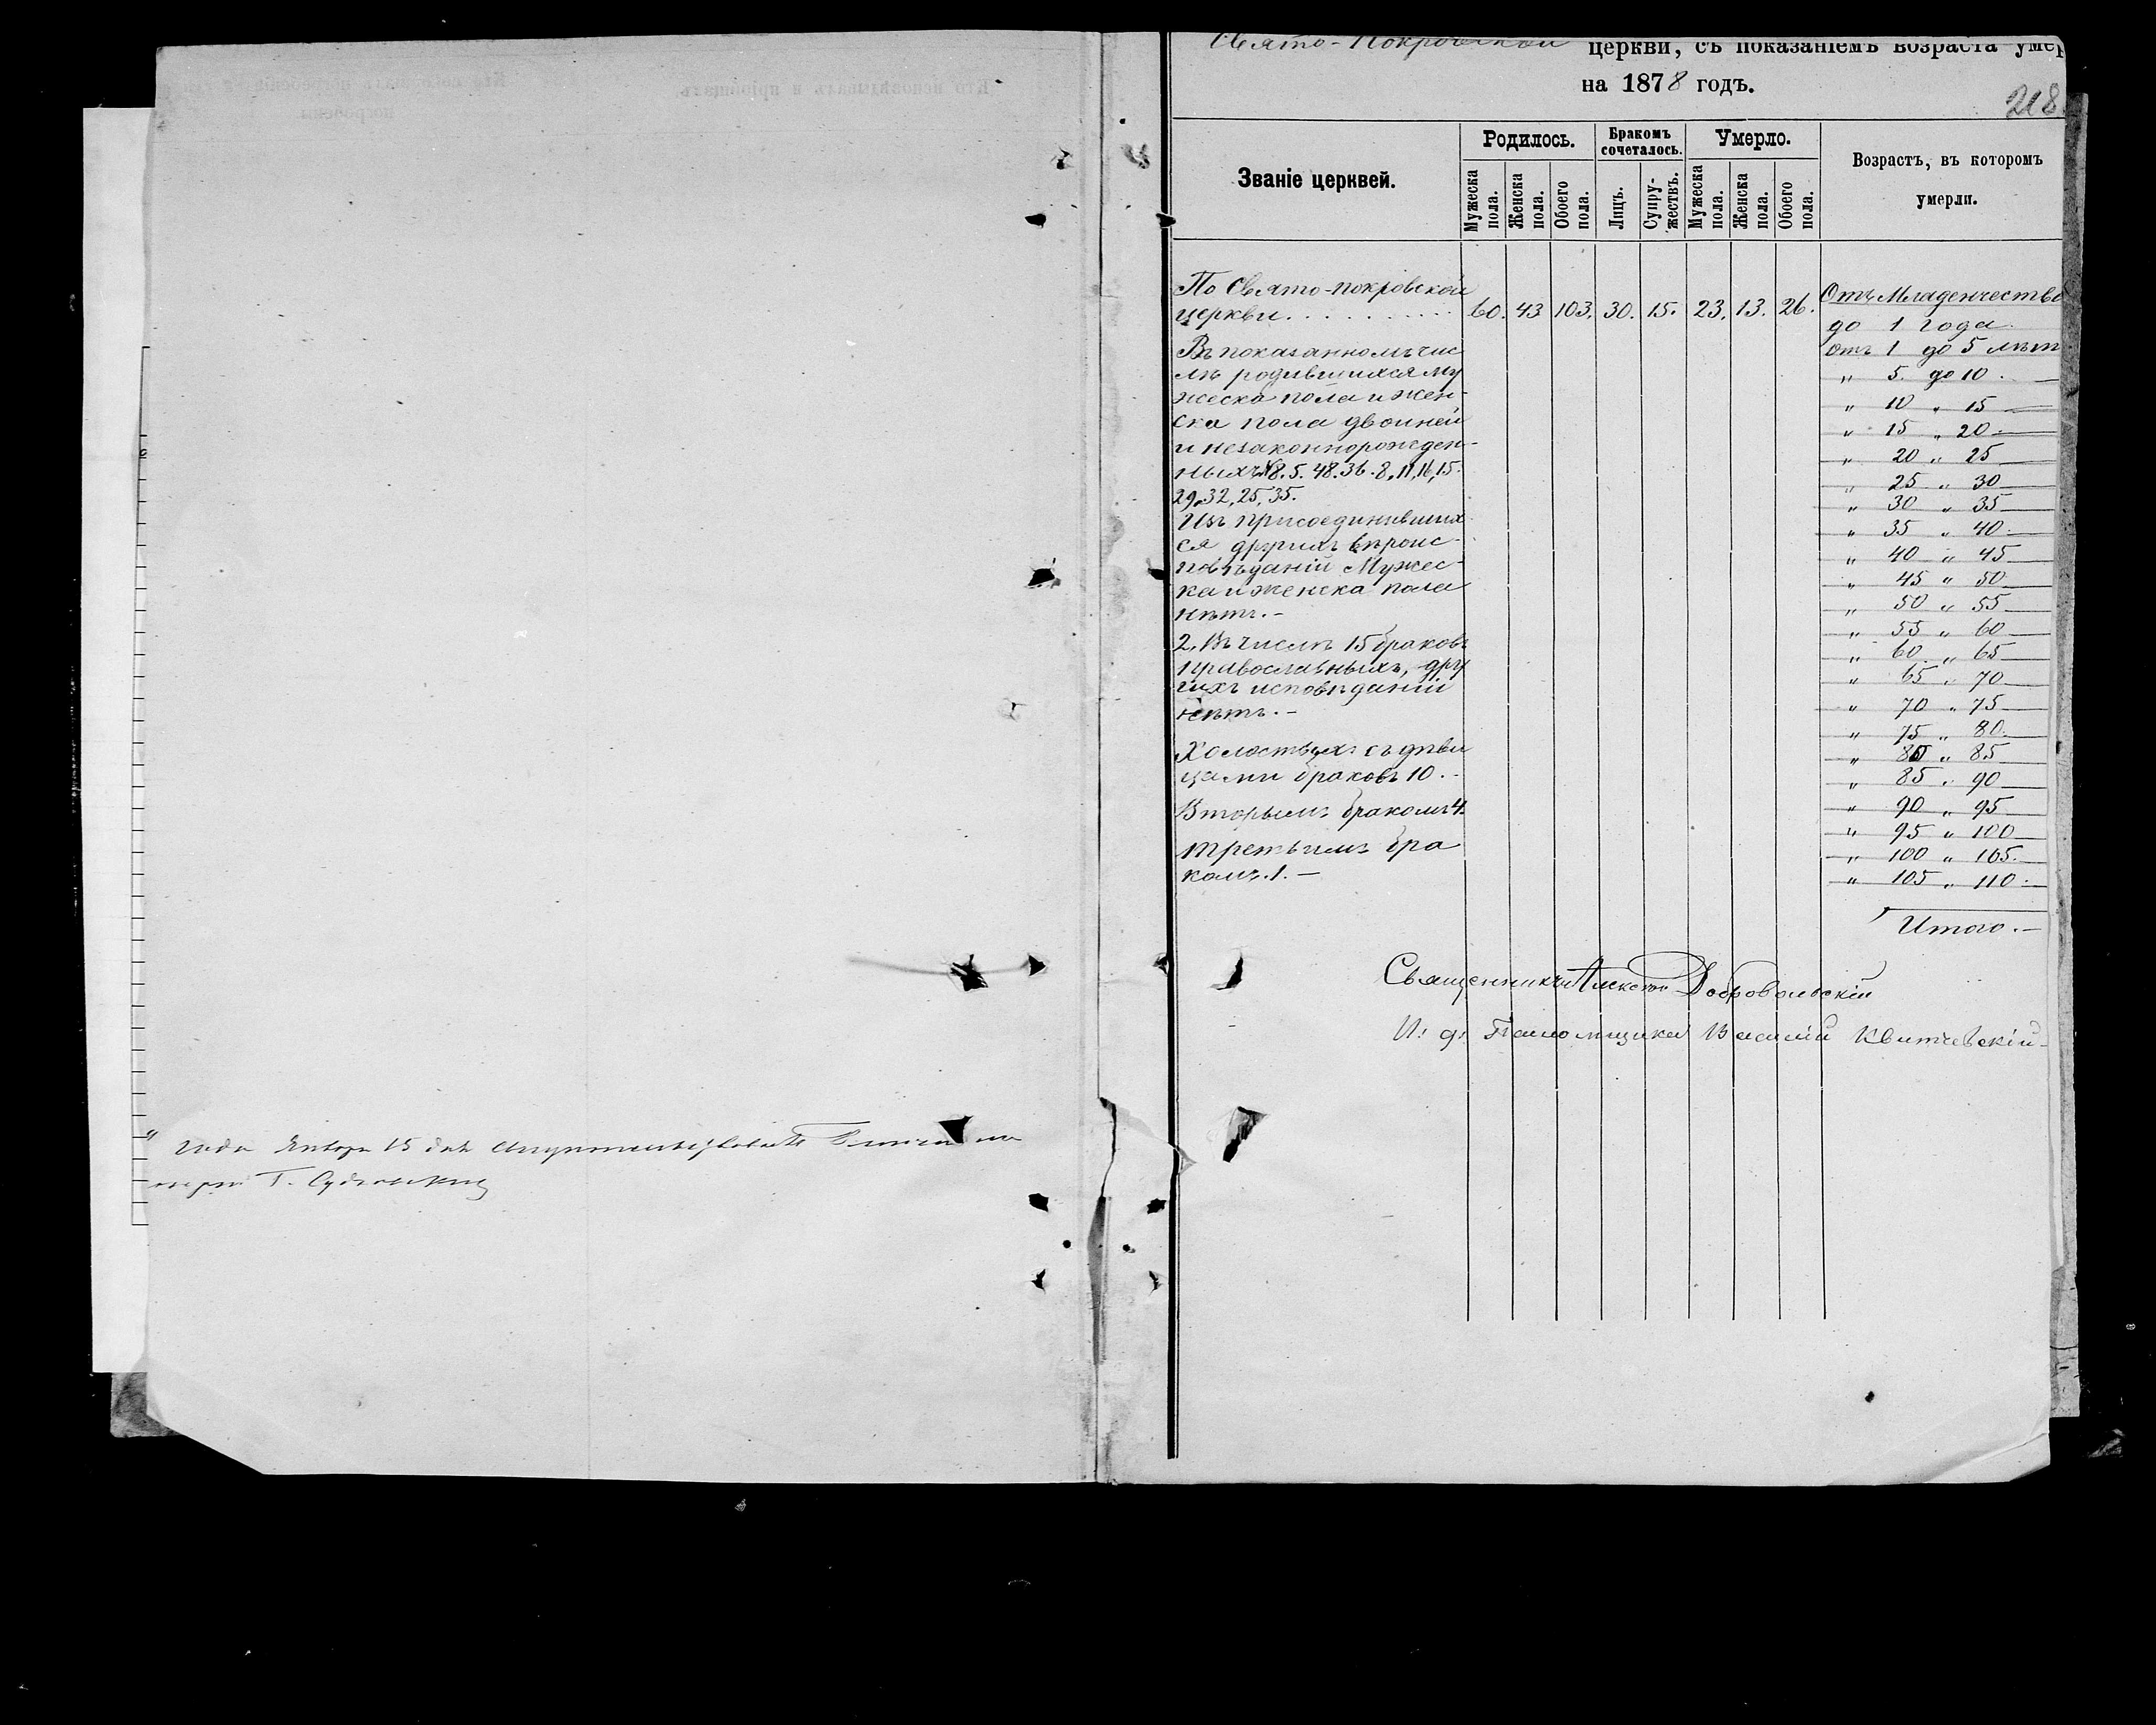 года Января 15 дня
Свято-Покровской церкви, съ показаніемъ возраста умер
на 1878 годъ.
218
Званіе церквей.
Родилось.
Бракомъ сочеталось.
Умерло.
Возрастъ, въ которомъ
умерли.
Мужеска пола.
Женска пола.
Обоего пола.
Лицъ.
Супружествъ.
Мужеска пола.
Женска пола.
Обоего пола.
По Свято-покровской
церкви . . . . . . . . . . 60. 43 103. 30. 15. 23. 13. 26.
Въ показанномъ чис
лѣ родившихся му
жеска пола и жен-
ска пола двойней
и незаконнорожден-
ныхъ №8. 5. 48. 36. 8, 11, 16, 15.
29, 32, 25, 35.
Изъ присоединивших
ся другихъ вѣроис-
повѣданій Мужес-
ка и женска пола
нѣтъ. -
2, Въ числѣ 15 браковъ
православныхъ, дру
гихъ исповѣданій
нѣтъ. -
Холостыхъ съ дѣви
цами браковъ 10. -
Вторымъ бракомъ 4.
третьимъ бра
комъ. 1. -
Отъ Младенчества
до 1 года.
Отъ 1 до 5 лѣтъ
" 5. до 10. —
" 10 " 15 —
" 15 " 20 —
" 20 " 25 —
" 25 " 30 —
" 30 " 35 —
" 35 " 40 —
" 40 " 45 —
" 45 " 50 —
" 50 " 55 —
" 55 " 60 —
" 60 " 65 —
" 65 " 70 —
" 70 " 75 —
" 75 " 80 —
" 80 " 85 —
" 85 " 90 —
" 90 " 95 —
" 95 " 100 —
" 100 " 105 —
" 105 " 110 —
Итого. —
Священникъ Алексѣй Добровольскій
И: д: Псаломщика Василій